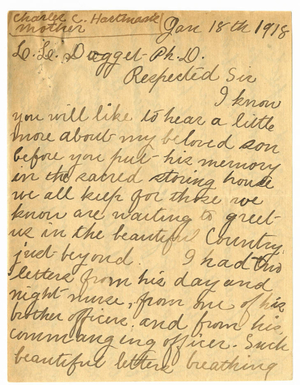 Charles C. Hartmask
mother
Jan 18th 1918
L. L. Dogget Ph. D.
Respected Sir
I know
you will like to hear a little
more about my beloved son
before you put his memory
in the sacred storing house
we all keep for those we
know are waiting to greet
us in the beautiful Country
just beyond I had two
letters from his day and
night nurse, from one of his
brother officers, and from his
commanging officer. Such
beautiful letters breathing